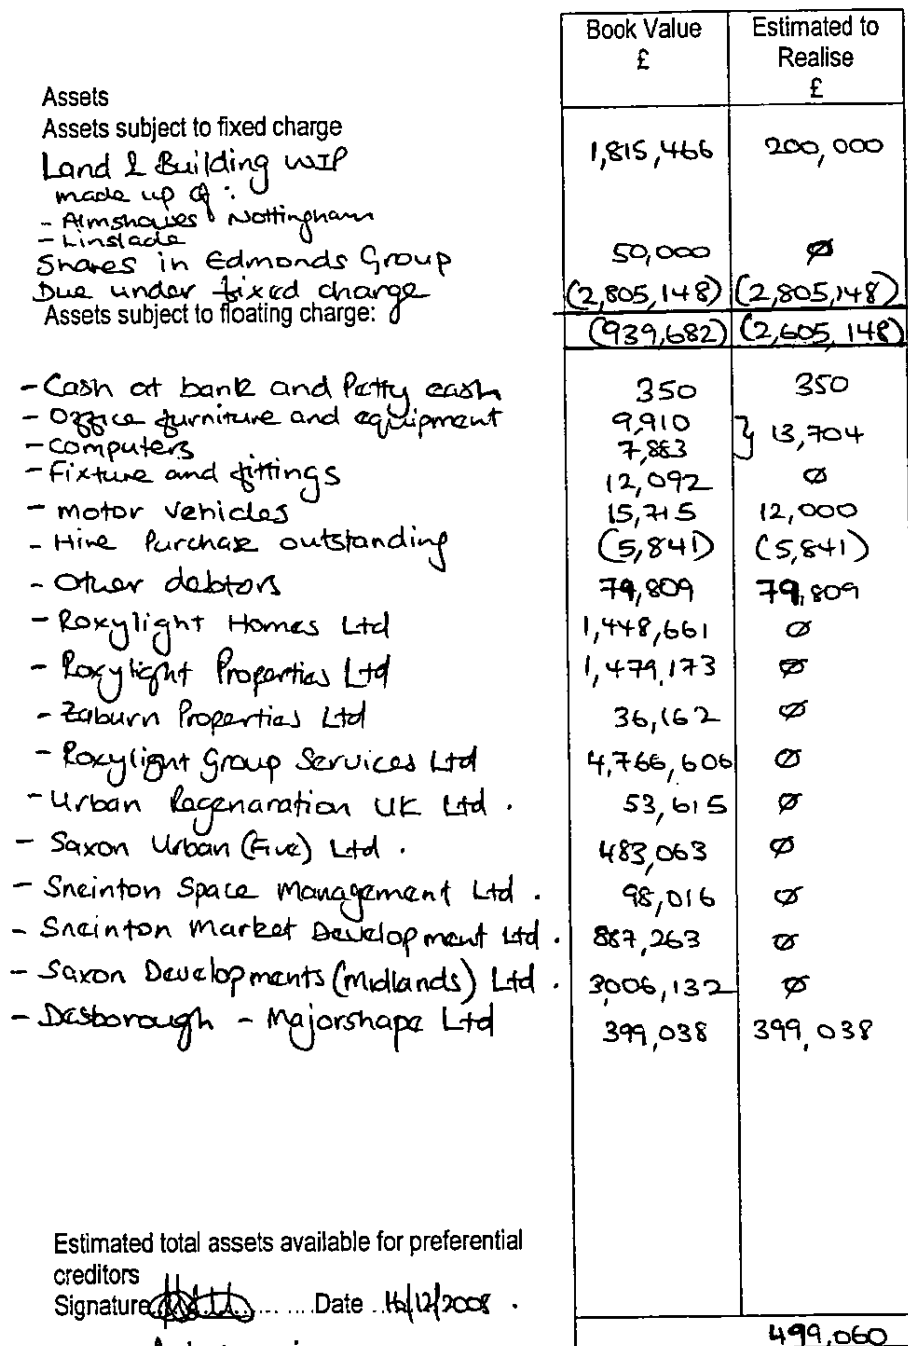 Book Value Estimated to
£ Realise
£
Assets
Assets subject to fixed charge
Land & Building WIP 1,815,466 200,000
made up of :
- Almshouses Nottingham
- Linslade
Shares in Edmonds Group 50,000 Ø
Due under fixed charge (2,805,148) (2,805,148)
Assets subject to floating charge:
(939,682) (2,605,148)
- Cash at bank and Petty cash 350 350
- Office furniture and equipment 9,910 } 13,704
- Computers 7,883
- Fixture and fittings 12,092 Ø
- motor vehicles 15,715 12,000
- Hire Purchase outstanding (5,841) (5,841)
- Other debtors 79,809 79,809
- Roxylight Homes Ltd 1,448,661 Ø
- Roxylight Properties Ltd 1,479,173 Ø
- Zaburn Properties Ltd 36,162 Ø
- Roxylight Group Services Ltd 4,766,606 Ø
- Urban Regenaration UK Ltd . 53,615 Ø
- Saxon Urban (Five) Ltd . 483,063 Ø
- Sneinton Space Management Ltd . 98,016 Ø
- Sneinton Market Development Ltd . 887,263 Ø
- Saxon Developments (Midlands) Ltd . 3006,132 Ø
- Desborough - Majorshape Ltd 399,038 399,038
Estimated total assets available for preferential
creditors
Signature .... Date 16/12/2008 .
499,060